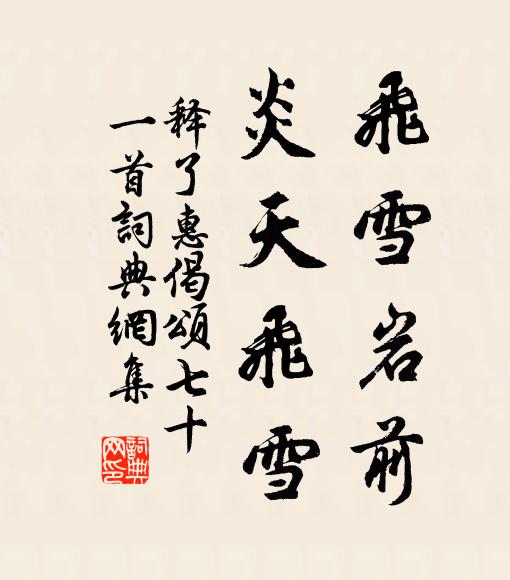 飛雪岩前
炎天飛雪
释了惠偈頌七十
一首詞典網集
詞典網印